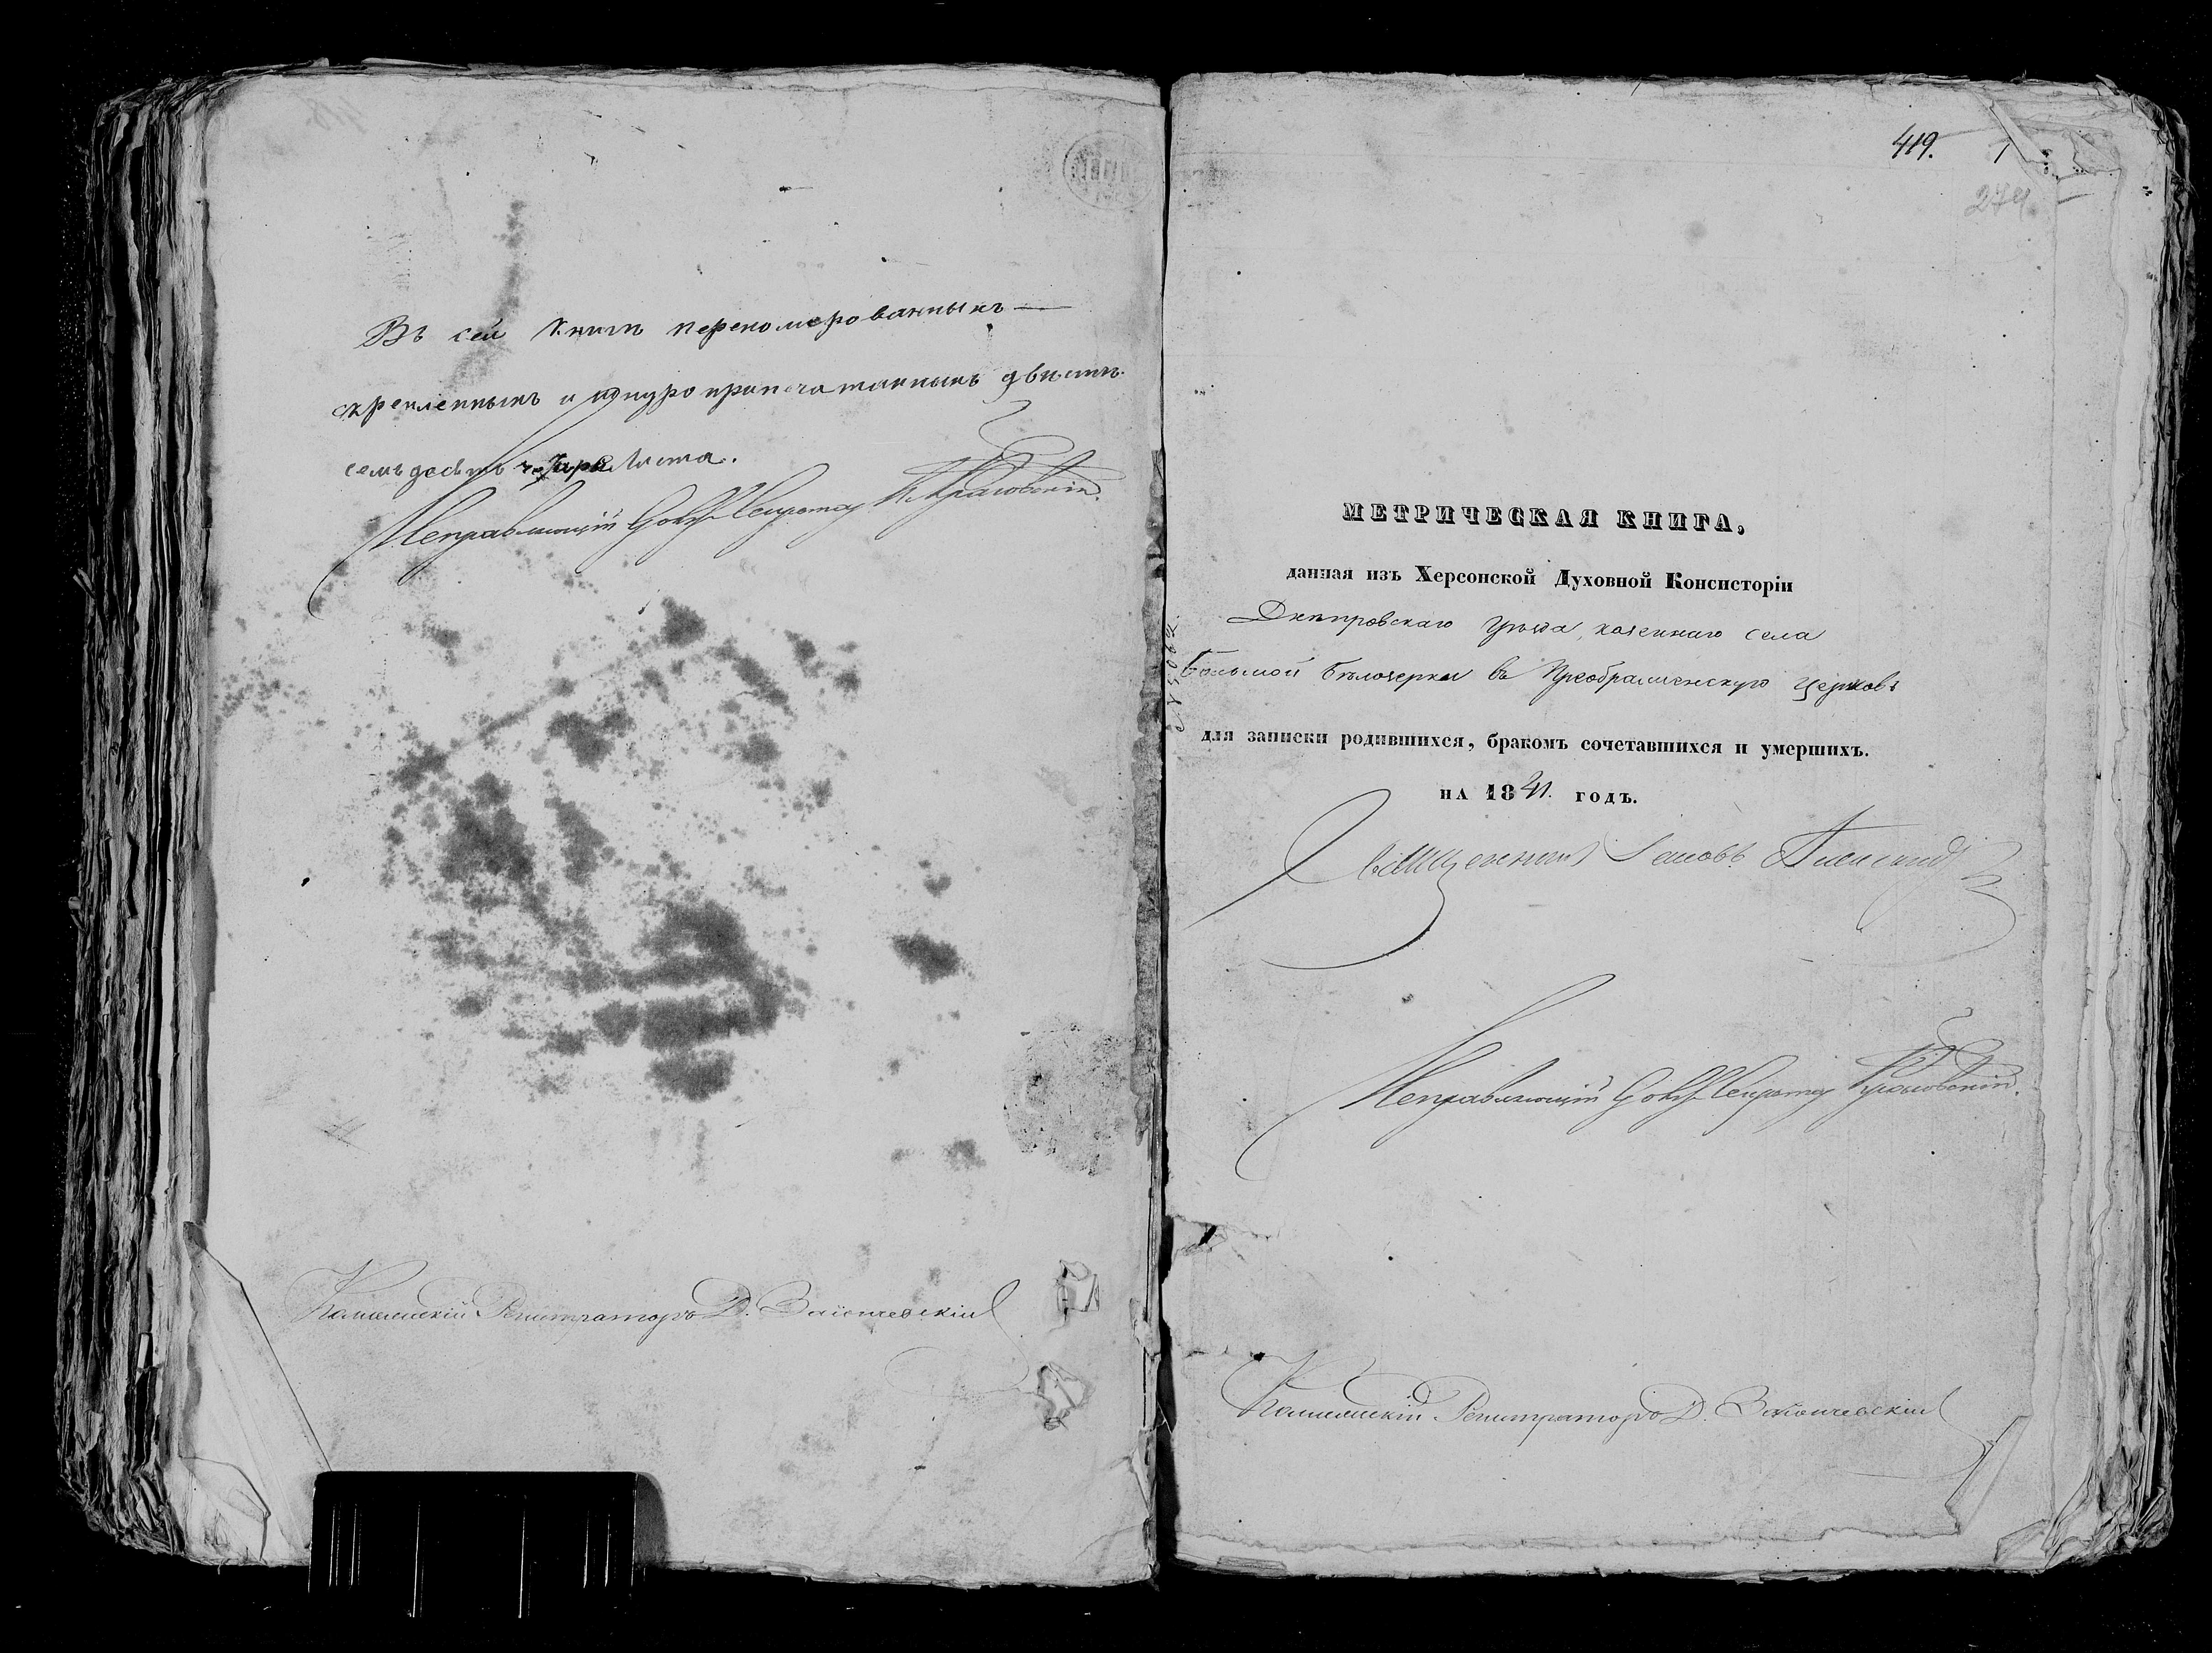 Въ сей книгѣ перенумерованныхъ
скрепленныхъ и шнуро припечатанныхъ двѣсти
семъдесятъ четыре листа.
Исправляющій Секретаря
Коллежскій Регистраторъ Д.
419. 1
274
МЕТРИЧЕСКАЯ КНИГА,
данная изъ Херсонской Духовной Консисторіи
Днѣпровскаго Уѣзда, казеннаго села
Большой Бѣлозерки въ Преображенскую Церковь
для записки родившихся, бракомъ сочетавшихся и умершихъ.
НА 1841. ГОДЪ.
Священникъ
Исправляющій Секретаря
Коллежскій Регистраторъ Д.